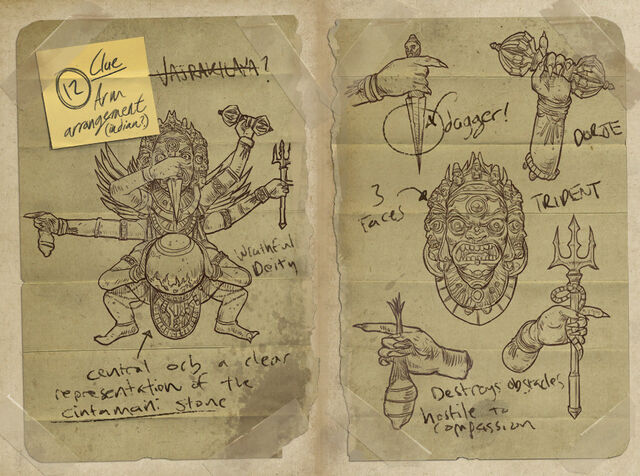 12
Clue
Arm
arrangement
(indian?)
VAJRAKILAYA?
Wrathful
Deity
central orb a clear
representation of the
cintamani stone
dagger!
DORJE
3
Faces
TRIDENT
Destroys obstacles
hostile to
compassion